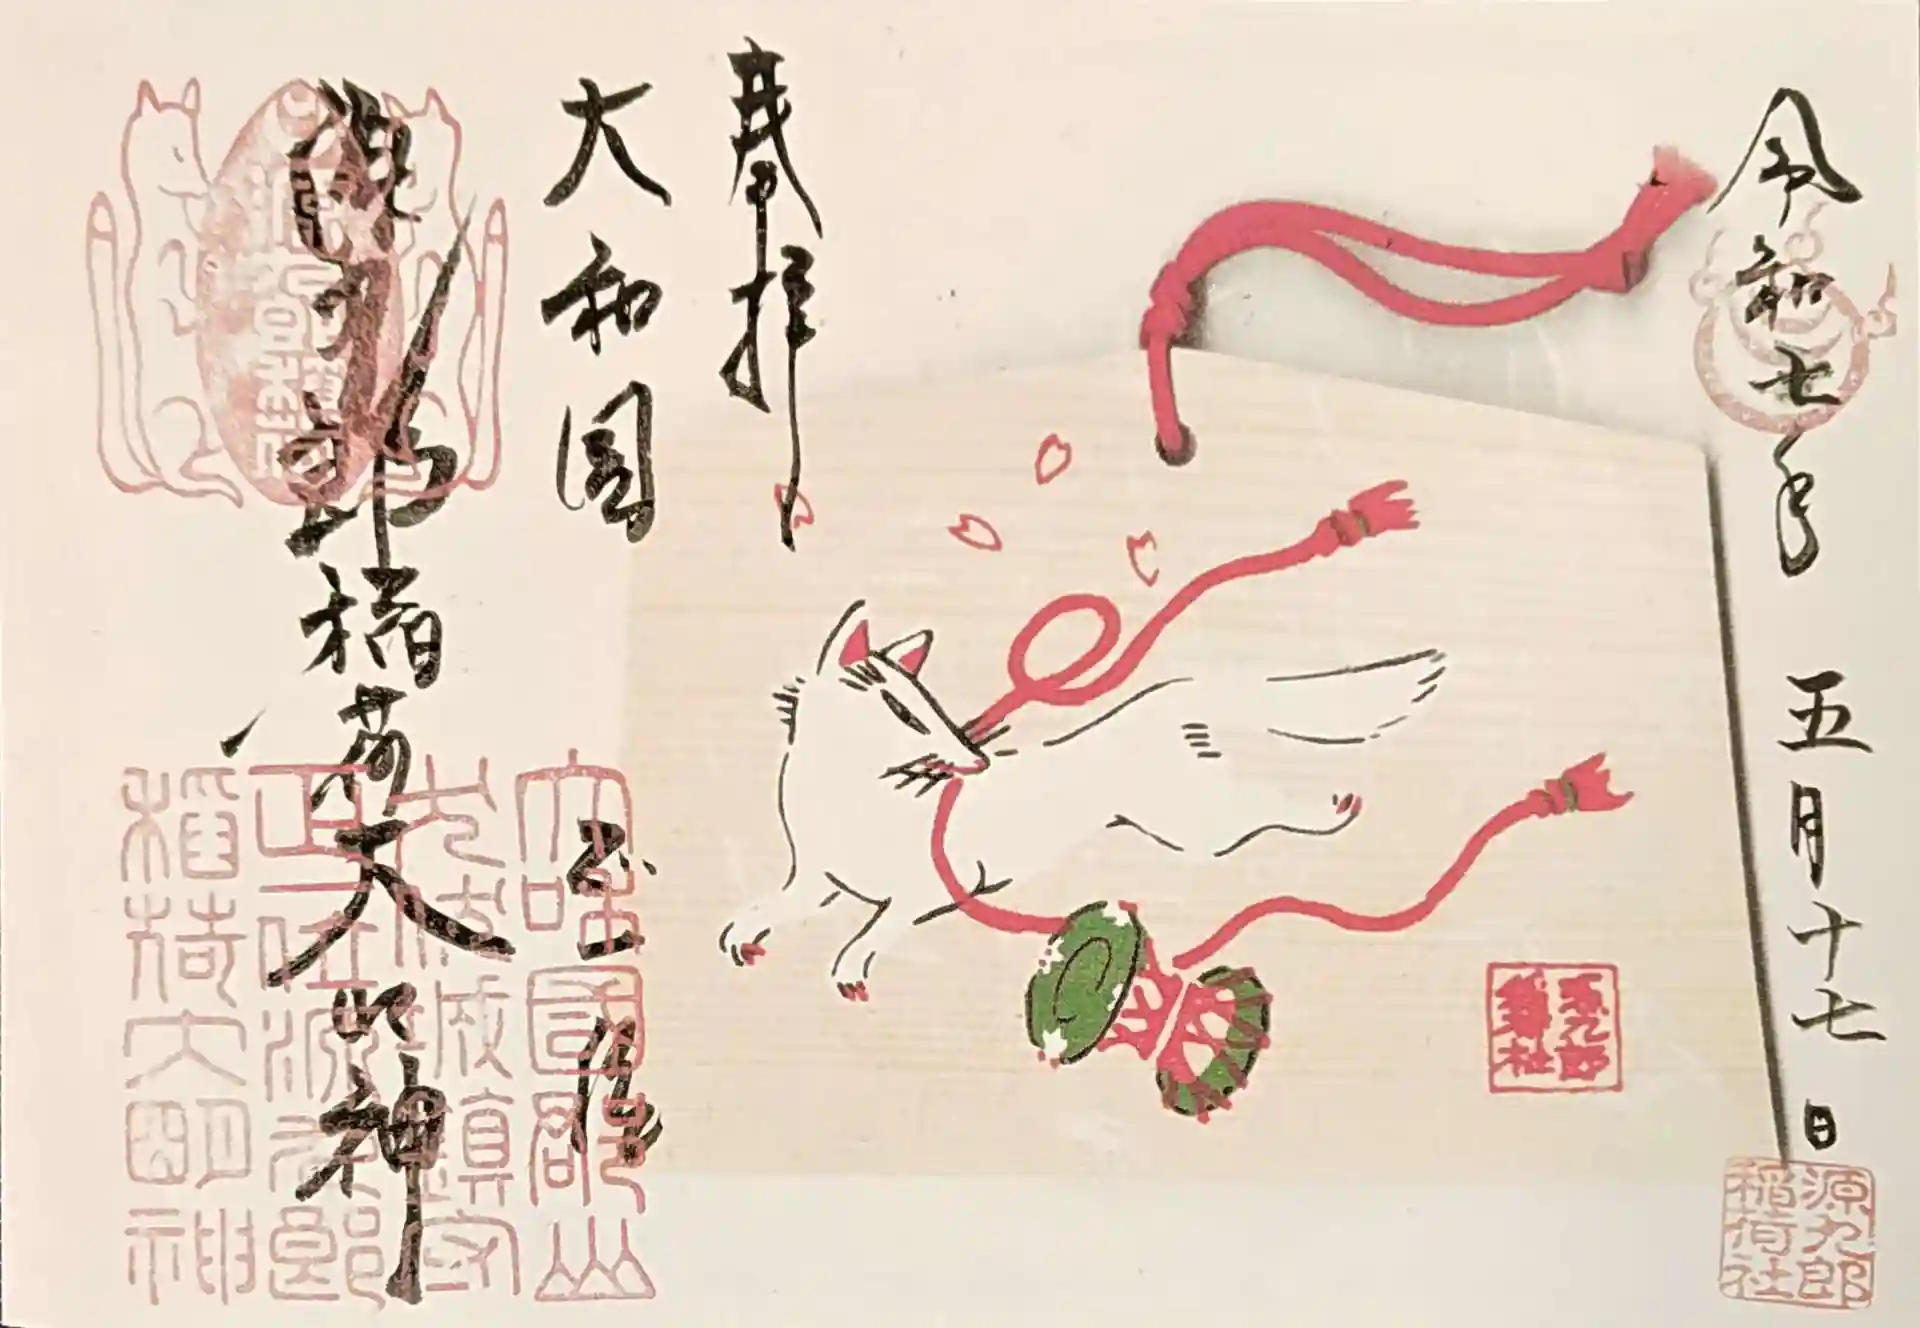 令和七年 五月十七日
源九郎
稲荷社
源九郎
稲荷社
奉拝
大和国
源九郎稲荷大明神
大咊國郡山
正一位源九郎
稲荷大明神